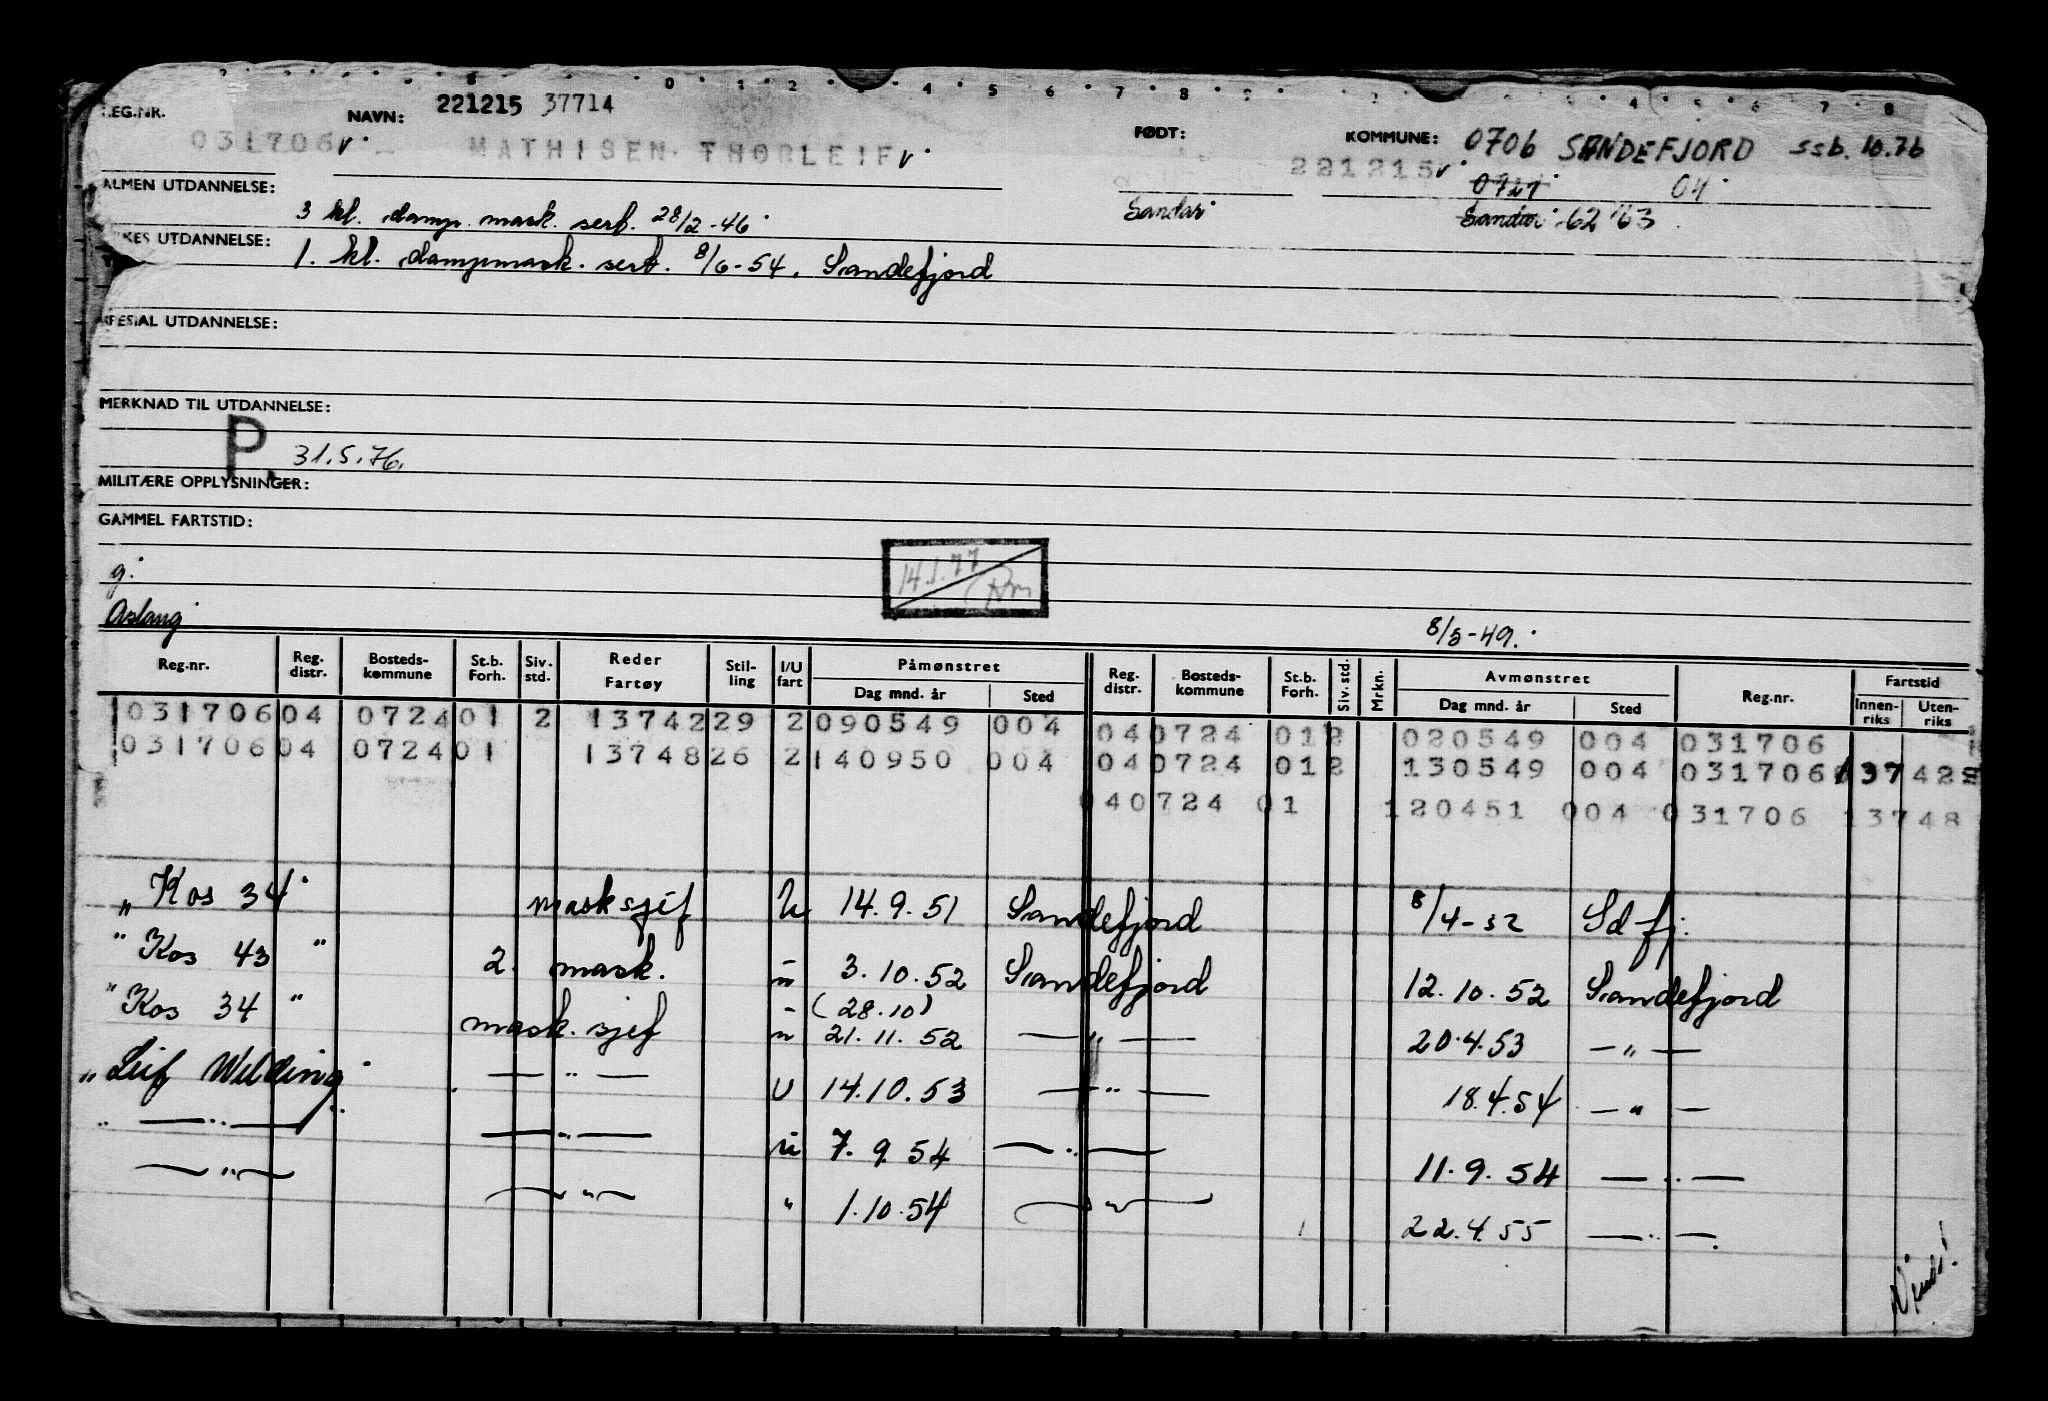 REG.NR. NAVN: 221215 37714 FØDT: KOMMUNE: 0706 SANDEFJORD ssb. 10.76
031706 MATHISEN THORLEIF 221215 0721 04
ALMEN UTDANNELSE: Sandar Sandar 62 63
3 kl. damp. mask. sert. 28/2-46
YRKES UTDANNELSE:
1. kl. dampmask. sert. 8/6-54. Sandefjord
SPESIAL UTDANNELSE:
MERKNAD TIL UTDANNELSE:
P. 31.5.76.
MILITÆRE OPPLYSNINGER:
GAMMEL FARTSTID:
14.1.77
g.
Aslaug 8/5-49.
Reg.nr. Reg. distr. Bosteds-kommune St.b. Forh. Siv. std. Reder Fartøy Stil-ling I/U fart Påmønstret Dag mnd. år Sted Reg. distr. Bosteds-kommune St.b. Forh. Siv. std. Mrkn. Avmønstret Dag mnd. år Sted Reg.nr. Fartstid Innen-riks Uten-riks
031706 04 0724 01 2 13742 29 2 090549 004 04 0724 01 2 020549 004 031706
031706 04 0724 01 13748 26 2 140950 004 04 0724 01 2 130549 004 031706 13742
04 0724 01 120451 004 031706 13748
" Kos 34 masksjef U 14.9.51 Sandefjord 8/4-52 Sdfj.
" Kos 43 " 2. mask. " 3.10.52 Sandefjord 12.10.52 Sandefjord
(28.10)
" Kos 34 " mask. sjef " 21.11.52 — " — 20.4.53 — " —
" Leif Welding — " — U 14.10.53 — " — 18.4.54 — " —
" — " — — " — " 7.9.54 — " — 11.9.54 — " —
— " — — " — " 1.10.54 — " — 22.4.55 — " —